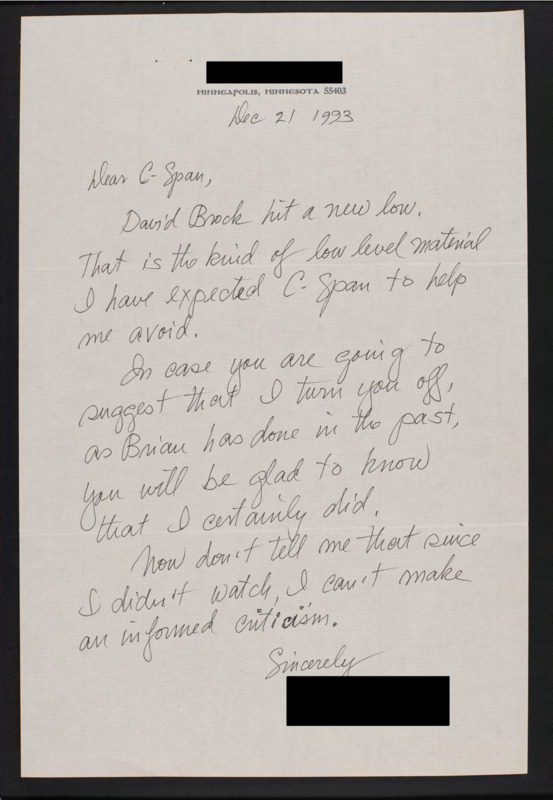 MINNEAPOLIS, MINNESOTA 55403
Dec 21 1993
Dear C-Span,
David Brock hit a new low.
That is the kind of low level material
I have expected C-Span to help
me avoid.
In case you are going to
suggest that I turn you off,
as Brian has done in the past,
you will be glad to know
that I certainly did.
Now don't tell me that since
I didn't watch, I can't make
an informed criticism.
Sincerely